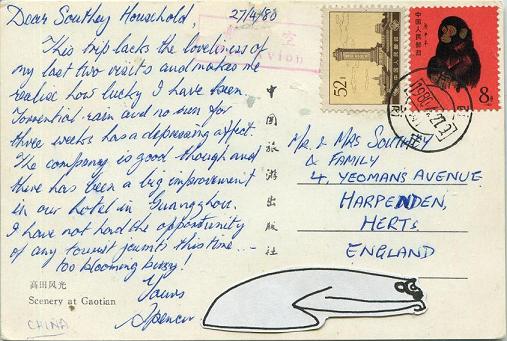 Dear Southey Household,
27/4/80
This trip lacks the loveliness of
my last two visits and makes me
realise how lucky I have been.
Torrential rain and no sun for
three weeks has a depressing affect.
The company is good though and
there has been a big improvement
in our hotel in Guangzhou.
I have not had the opportunity
of any tourist jaunts this time...
too blooming busy!
Yours
Spencer
高田风光
Scenery at Gaotian
CHINA
中国旅游出版社
空
avion
52
中国人民邮政
8
Mr. & MRS SOUTHEY
& FAMILY
4, YEOMANS AVENUE
HARPENDEN,
HERTS
ENGLAND